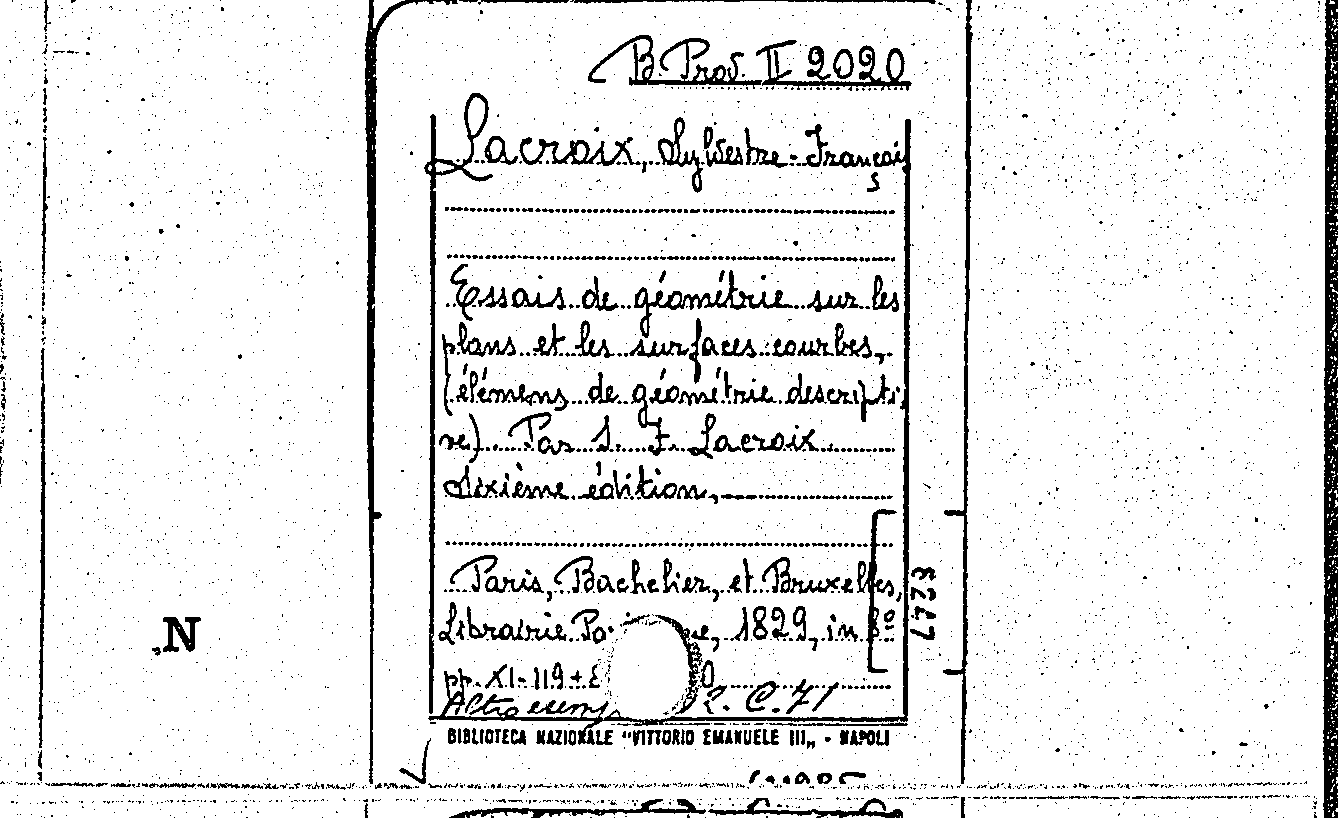 B. Prov. II 2020
Lacroix, Sylvestre-Françai
s
Essais de géométrie sur les
plans et les surfaces courbes,
(élémens de géométrie descripti
ve). Par S. F. Lacroix.
Sixième édition,
Paris, Bachelier, et Bruxelles,
Librairie 1829, in 8º
pp. XI-119+
Altro 2. C. 71
BIBLIOTECA NAZIONALE "VITTORIO EMANUELE III„ - NAPOLI
N